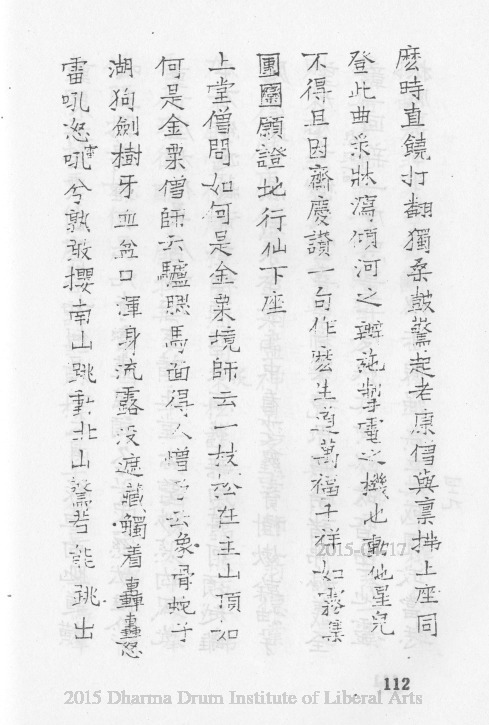 麽時直饒打翻獨桑鼓驚起老原僧與禀拂上座同
登此曲彔牀瀉傾河之辯施掣電之機也動他星兒
不得且因齋慶讚一句作麽生道萬福千祥如霧集
團圞願證地行仙下座
上堂僧問如何是金粟境師云一枝松在主山頂如
何是金粟僧師云驢腮馬面得人憎乃云象骨蛇子
湖狗劍樹牙血盆口渾身流露没遮藏觸着轟轟怒
雷吼怒吼兮孰敢攖南山跳動北山驚若能跳出
2015-04-17
112
2015 Dharma Drum Institute of Liberal Arts